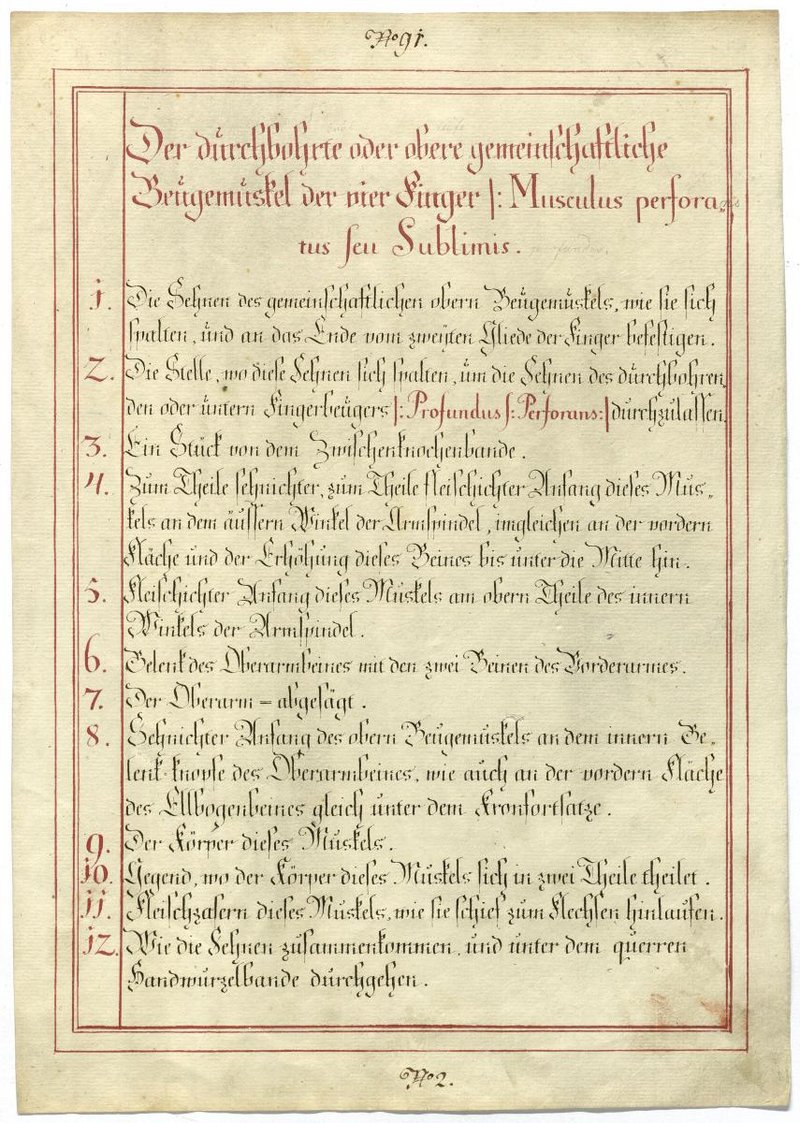 No 91.
Der durchbohrte oder obere gemeinschaftliche
Beugemuskel der vier Finger |: Musculus perfora-
tus seu Sublimis.
1. Die Sehnen des gemeinschaftlichen obern Beugemuskels, wie sie sich
spalten, und an das Ende vom zweyten Gliede der Finger befestigen.
2. Die Stelle, wo diese Sehnen sich spalten, um die Sehnen des durchbohren
den oder untern Fingerbeugers |: Profundus s: Perforans:| durchzulassen.
3. Ein Stück von dem Zwischenknochenbande.
4. Zum Theile sehnichter, zum Theile fleischichter Anfang dieses Mus-
kels an dem äussern Winkel der Armspindel, imgleichen an der vordern
Fläche und der Erhöhung dieses Beines bis unter die Mitte hin.
5. Fleischichter Anfang dieses Muskels am obern Theile des innern
Winkels der Armspindel.
6. Gelenk des Oberarmbeines mit den zwei Beinen des Vorderarmes.
7. Der Oberarm = abgesägt.
8. Sehnichter Anfang des obern Beugemuskels an dem innern Ge-
lenk-knopfe des Oberarmbeines, wie auch an der vordern Fläche
des Ellbogenbeines gleich unter dem Kronfortsatze.
9. Der Körper dieses Muskels.
10. Gegend, wo der Körper dieses Muskels sich in zwei Theile theilet.
11. Fleischzasern dieses Muskels, wie sie schief zum Flechsen hinlaufen.
12. Wie die Sehnen zusammenkommen, und unter dem querren
Handwurzelbande durchgehen.
No 2.